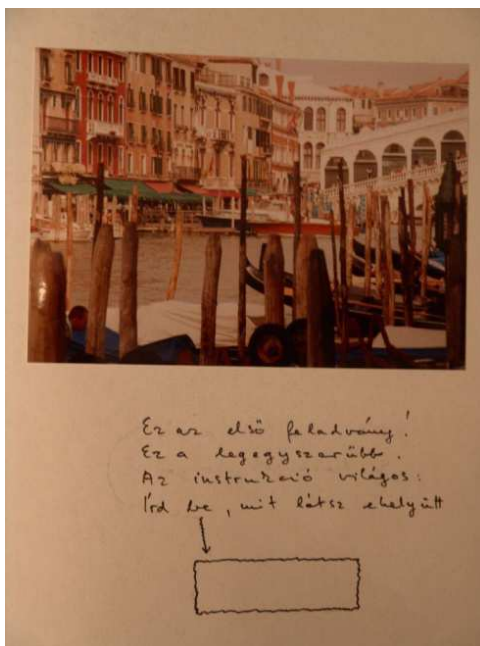 Ez az első feladvány!
Ez a legegyszerűbb.
Az instrukció világos:
Írd be, mit látsz ehelyütt